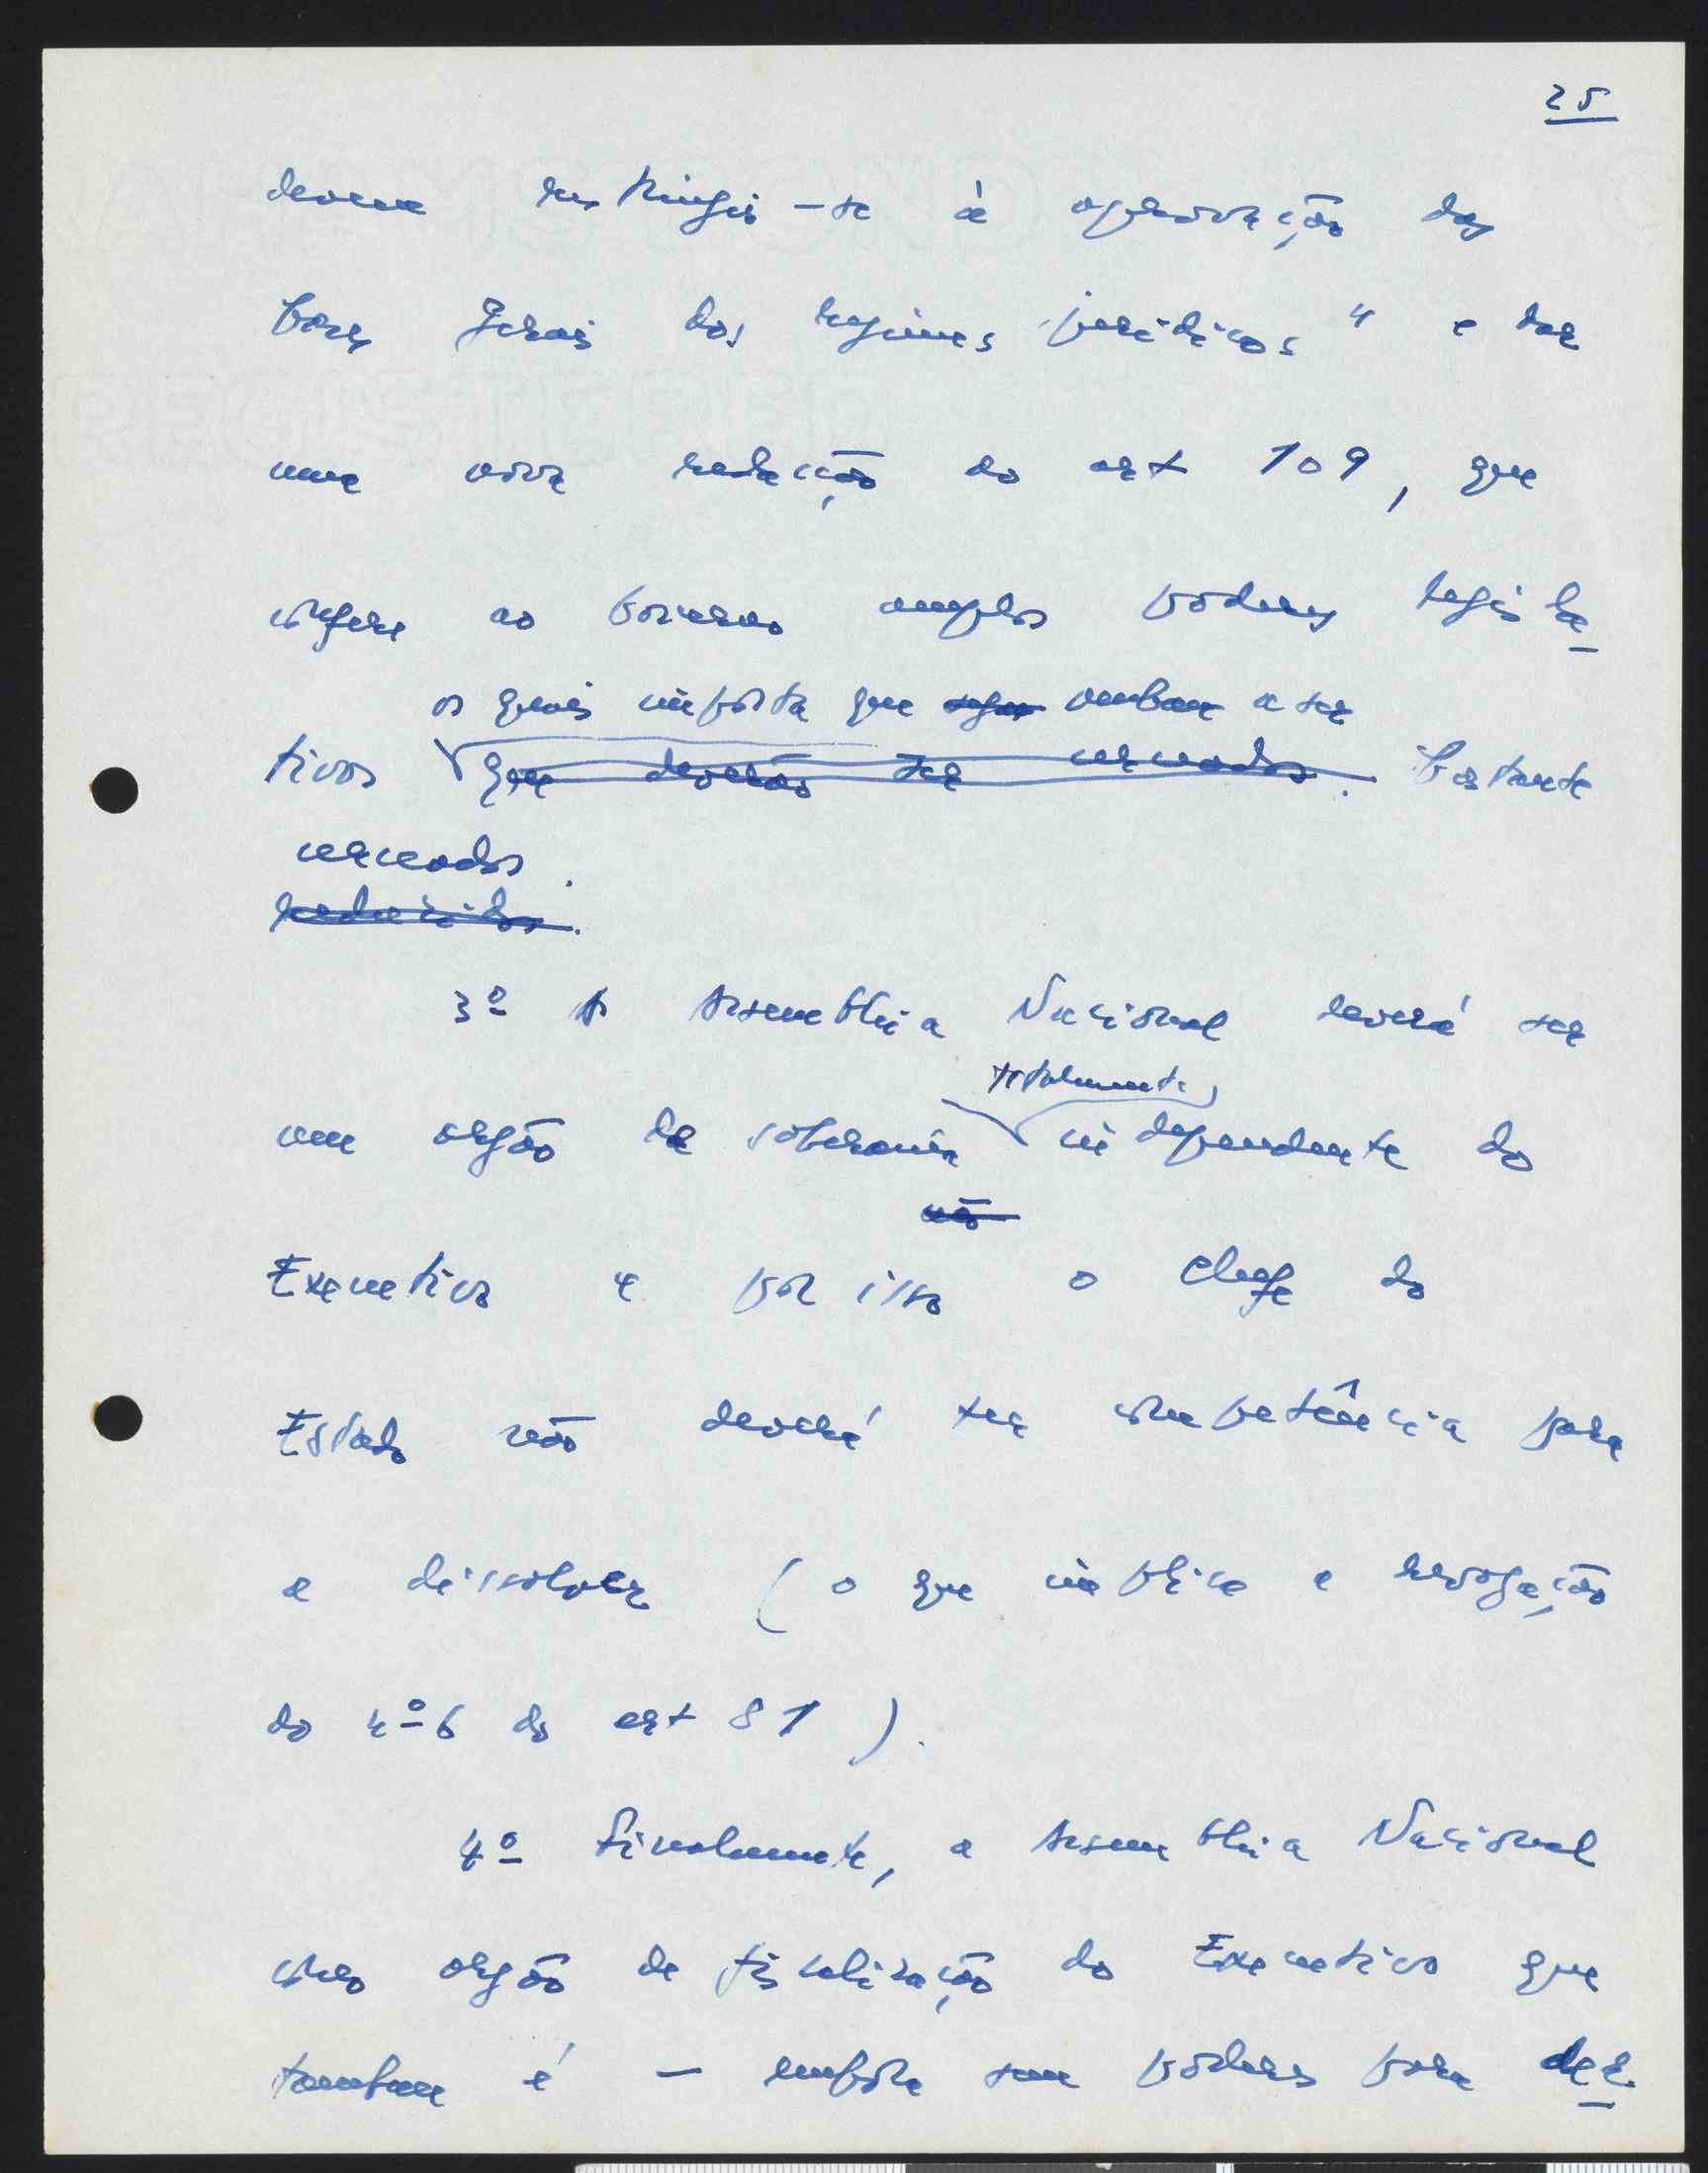 25
devem restringir-se à aprovação das
bases gerais dos regimes jurídicos" e dar
uma nova redacção ao art 109, que
confere ao Governo amplos poderes legisla-
os quais importa que sejam venham a ser
tivos que deverão ser cerceados. bastante
cerceados.
reduzidos.
3º A Assembleia Nacional deverá ser
totalmente
um orgão de soberania independente do
não
Executivo e por isso o Chefe do
Estado não deverá ter competência para
a dissolver (o que implica a revogação
do nº6 do art 81).
4º Finalmente, a Assembleia Nacional
como orgão de fiscalização do Executivo que
tambem é — embora sem poderes para der-